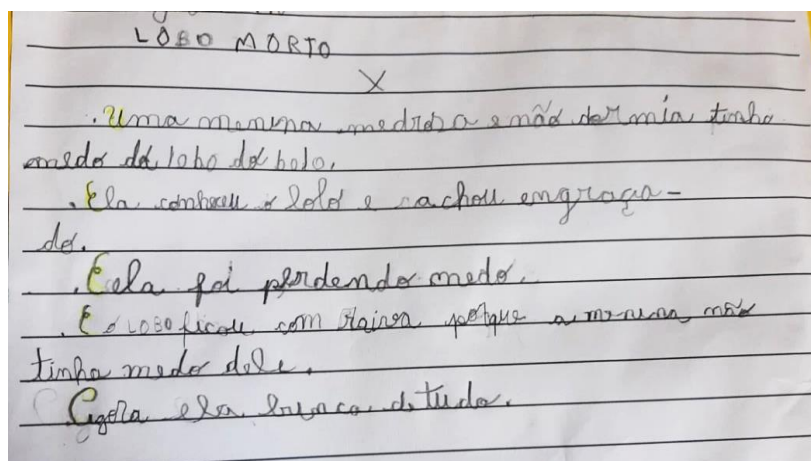 LOBO MORTO
X
.Uma menina medrosa e não dormia tinha
medo do lobo do bolo.
.Ela conheceu o lolo e achou engraça-
do.
.E ela foi perdendo medo.
.E o LOBO ficou com raiva porque a menina não
tinha medo dele.
Agora ela brinca de tudo.